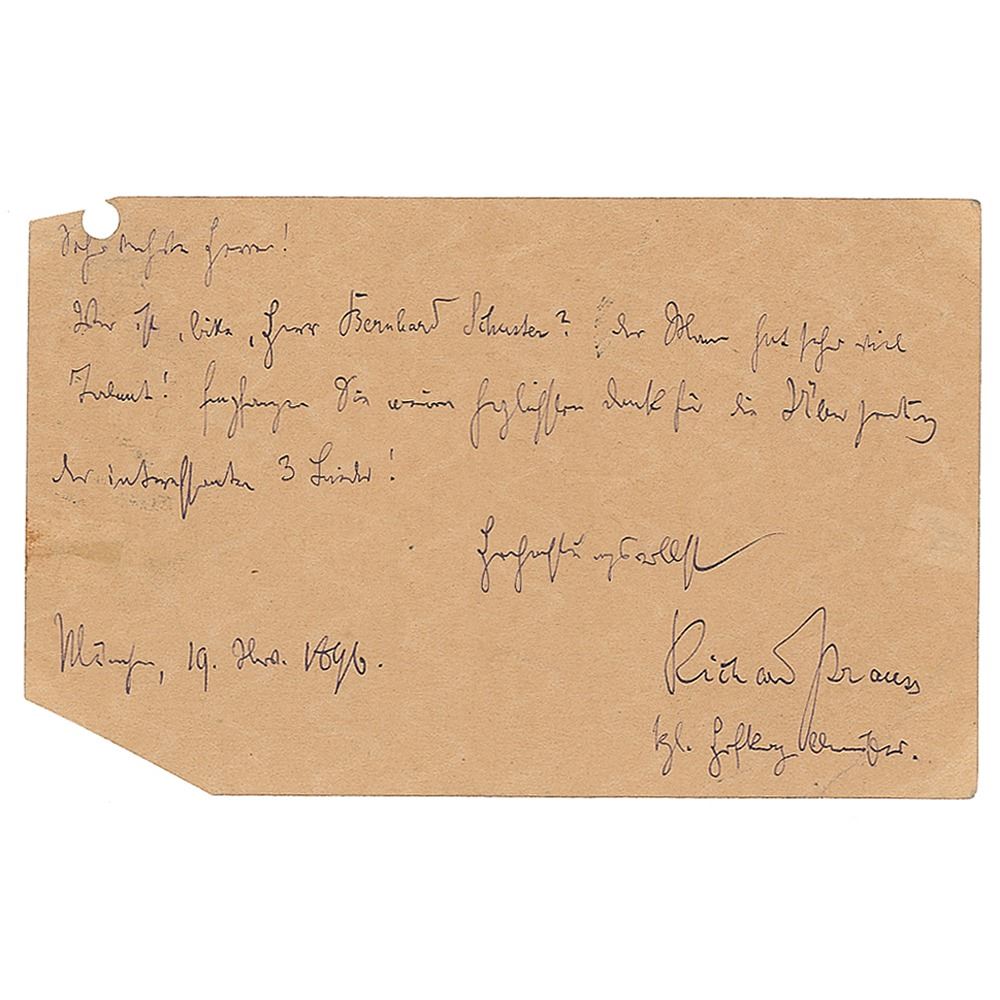 Sehr geehrter Herr!
Wer ist, bitte, Herr Bernhard Schuster? der Mann hat sehr viel
Talent! Empfangen Sie meinen herzlichsten Dank für die Übersendung
der interessanten 3 Lieder!
Hochachtungsvollst
München, 19. Nov. 1896.
Richard Strauss
kgl. Hofkapellmeister.